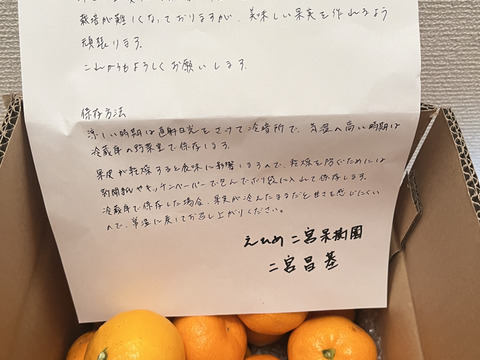 栽培が難しくなっておりますが、美味しい果実を作れるよう
頑張ります。
これからもよろしくお願いします。
保存方法
涼しい時期は直射日光をさけて冷暗所で、気温が高い時期は
冷蔵庫の野菜室で保存します。
果皮が乾燥すると食味に影響するので、乾燥を防ぐためには
新聞紙やキッチンペーパーで包んでポリ袋に入れて保存します。
冷蔵庫で保存した場合、果実が冷えたままだと甘さを感じにくい
ので、常温に戻してお召し上がりください。
えひめ 二宮果樹園
二宮昌基